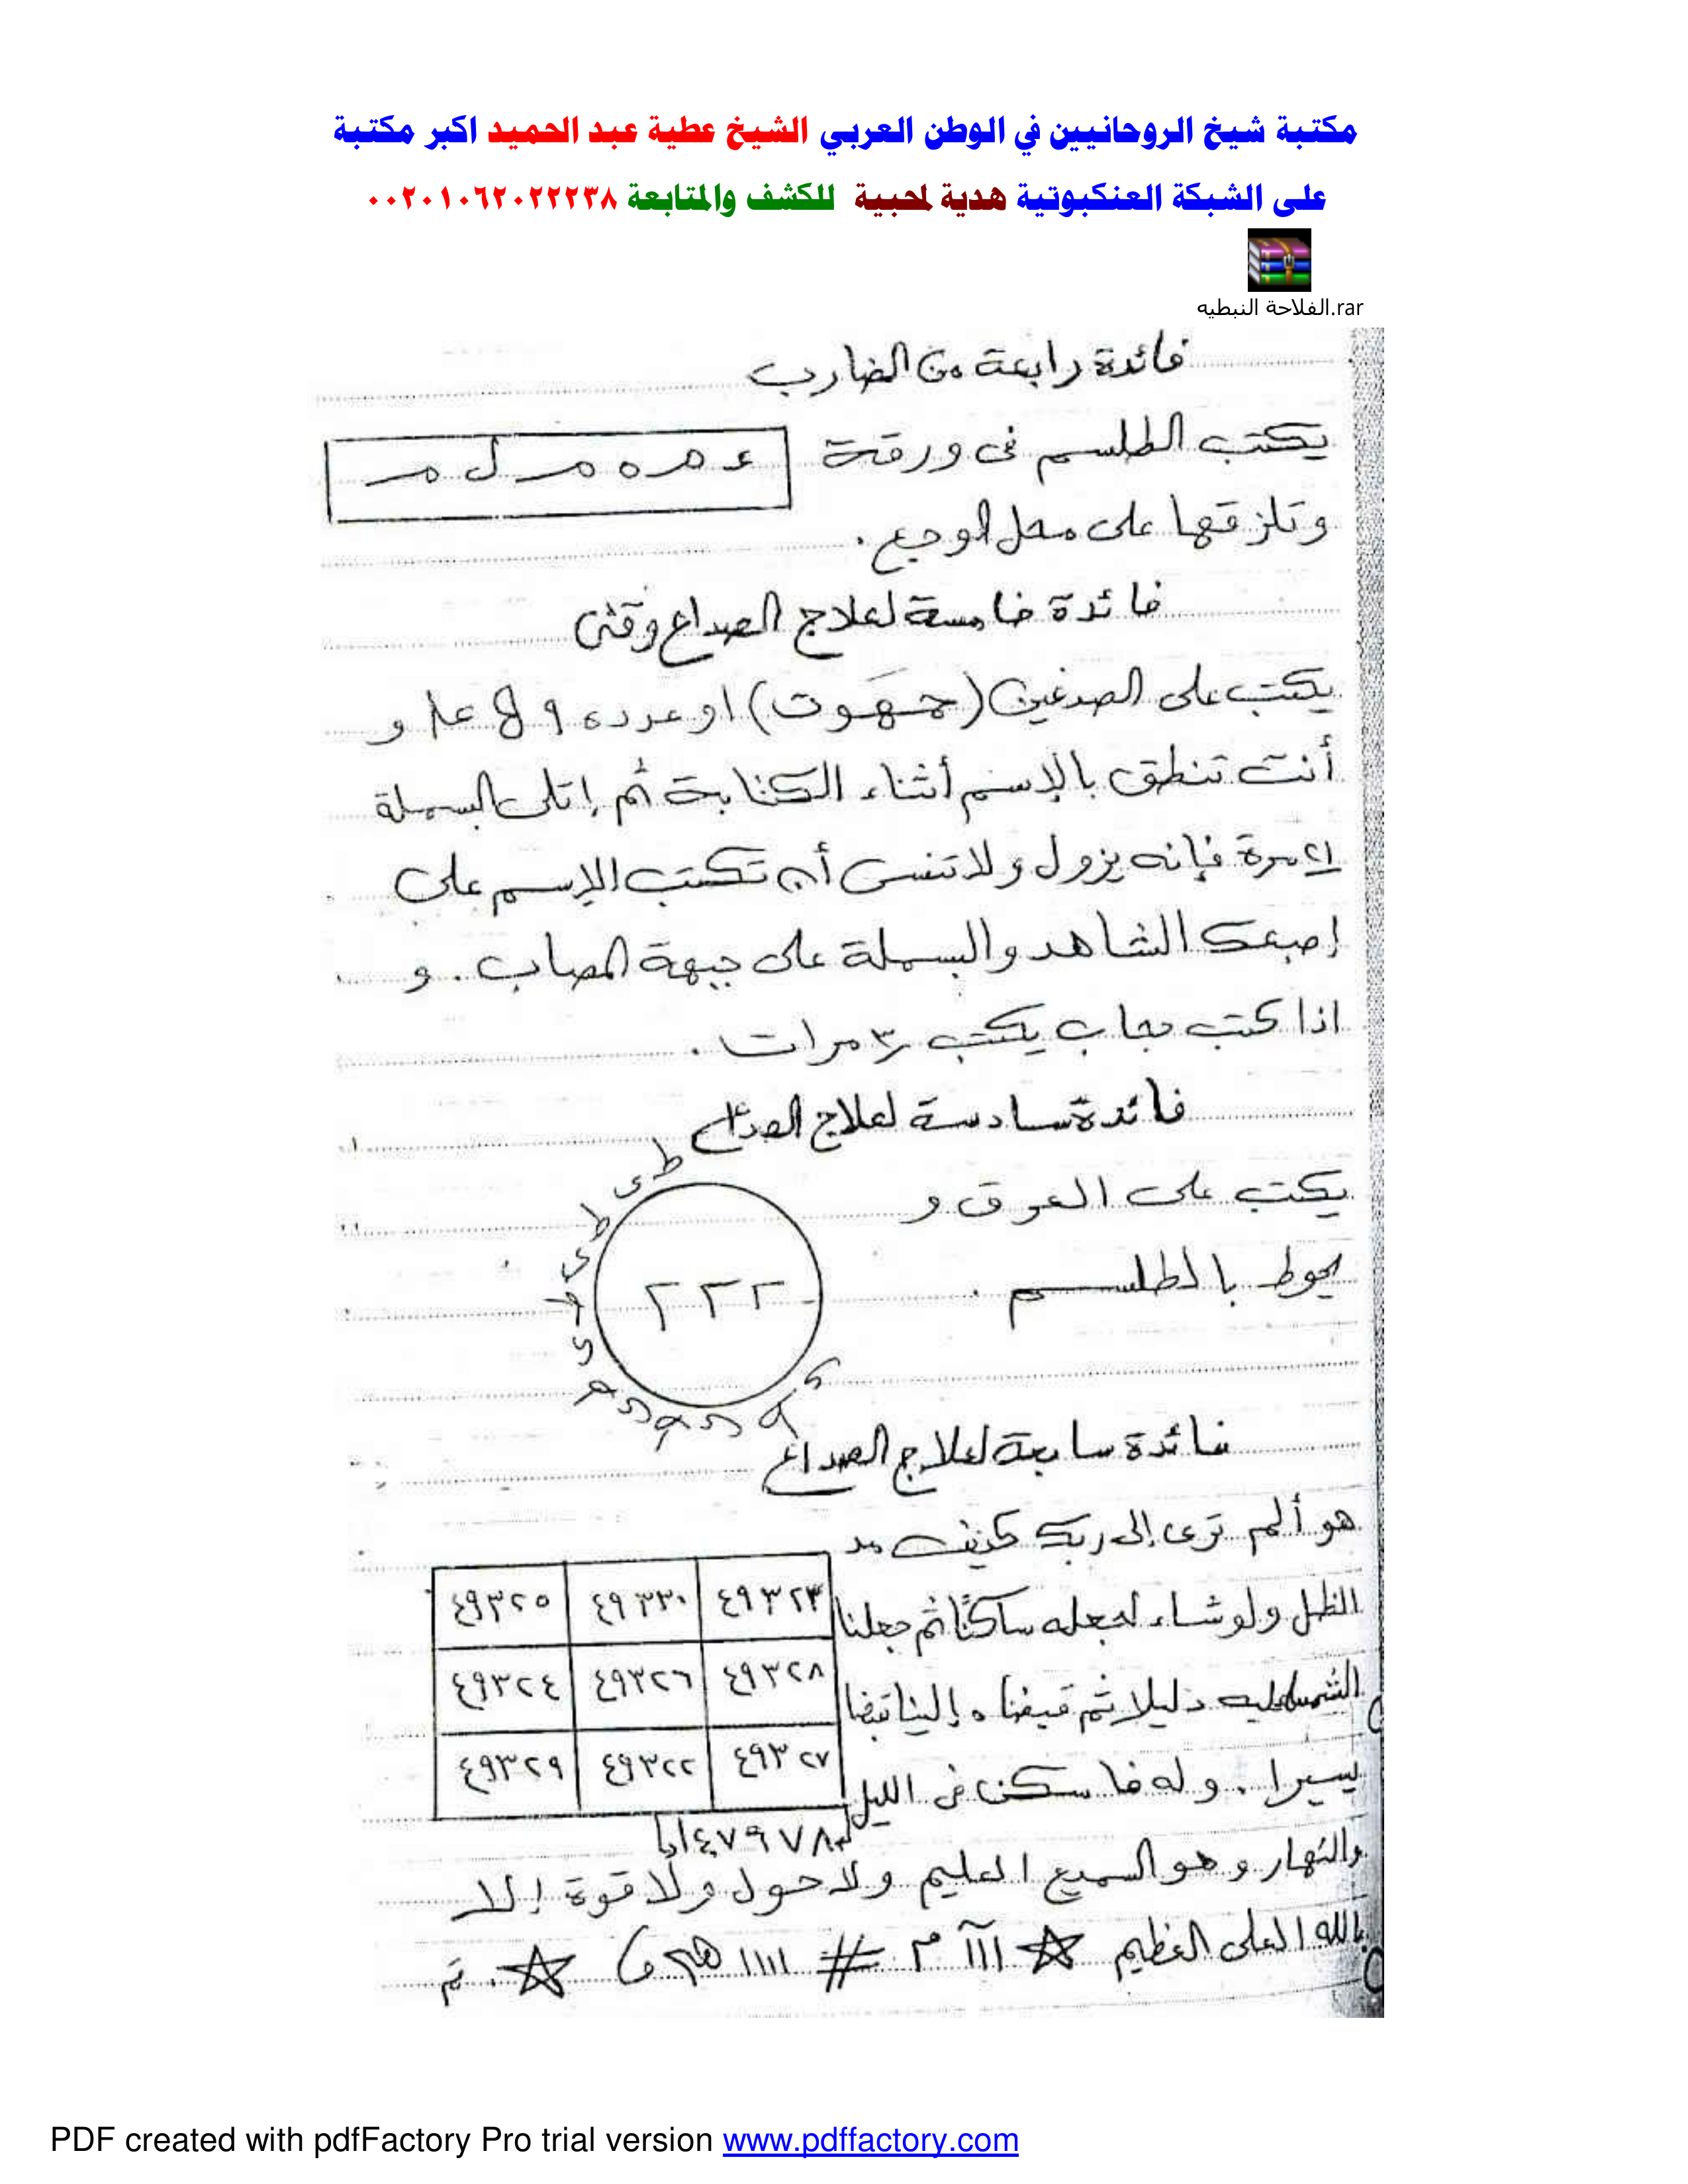 مكتبة شيخ الروحانيين في الوطن العربي الشيخ عطية عبد الحميد اكبر مكتبة
على الشبكة العنكبوتية هدية لمحبية للكشف والمتابعة ٠٠٢٠١٠٦٢٠٢٢٢٣٨
الفلاحة النبطيه.rar
فائدة رابعة من الضارب
يكتب الطلسم فى ورقة
وتلزقها على محل الوجع .
فائدة خامسة لعلاج الصداع وقتى
يكتب على الصدغين (جهوت) او عدده
أنت تنطق بالإسم أثناء الكتابة ثم إتلى البسملة
٢١ مرة فإنه يزول ولا تنسى أن تكتب الإسم على
إصبعك الشاهد والبسملة على جبهة المصاب . و
اذا كتب حجاب يكتب ٣ مرات .
فائدة سادسة لعلاج الصداع
يكتب على العرق و
يحوط بالطلسم .
٢٢٢
فائدة سابعة لعلاج الصداع
هو ألم ترى إلى ربك كيف مد
الظل ولو شاء لجعله ساكنًا ثم جعلنا
الشمس عليه دليلا ثم قبضناه إلينا قبضا
يسيرا . وله ما سكن فى الليل
٤٩٣٢٣ ٤٩٣٣٠ ٤٩٣٢٥
٤٩٣٢٨ ٤٩٣٢٦ ٤٩٣٢٤
٤٩٣٢٧ ٤٩٣٢٢ ٤٩٣٢٩
والنهار وهو السميع العليم ولا حول ولا قوة إلا
بالله العلى العظيم ☆ ااا م # اااا ☆ . تم
PDF created with pdfFactory Pro trial version www.pdffactory.com